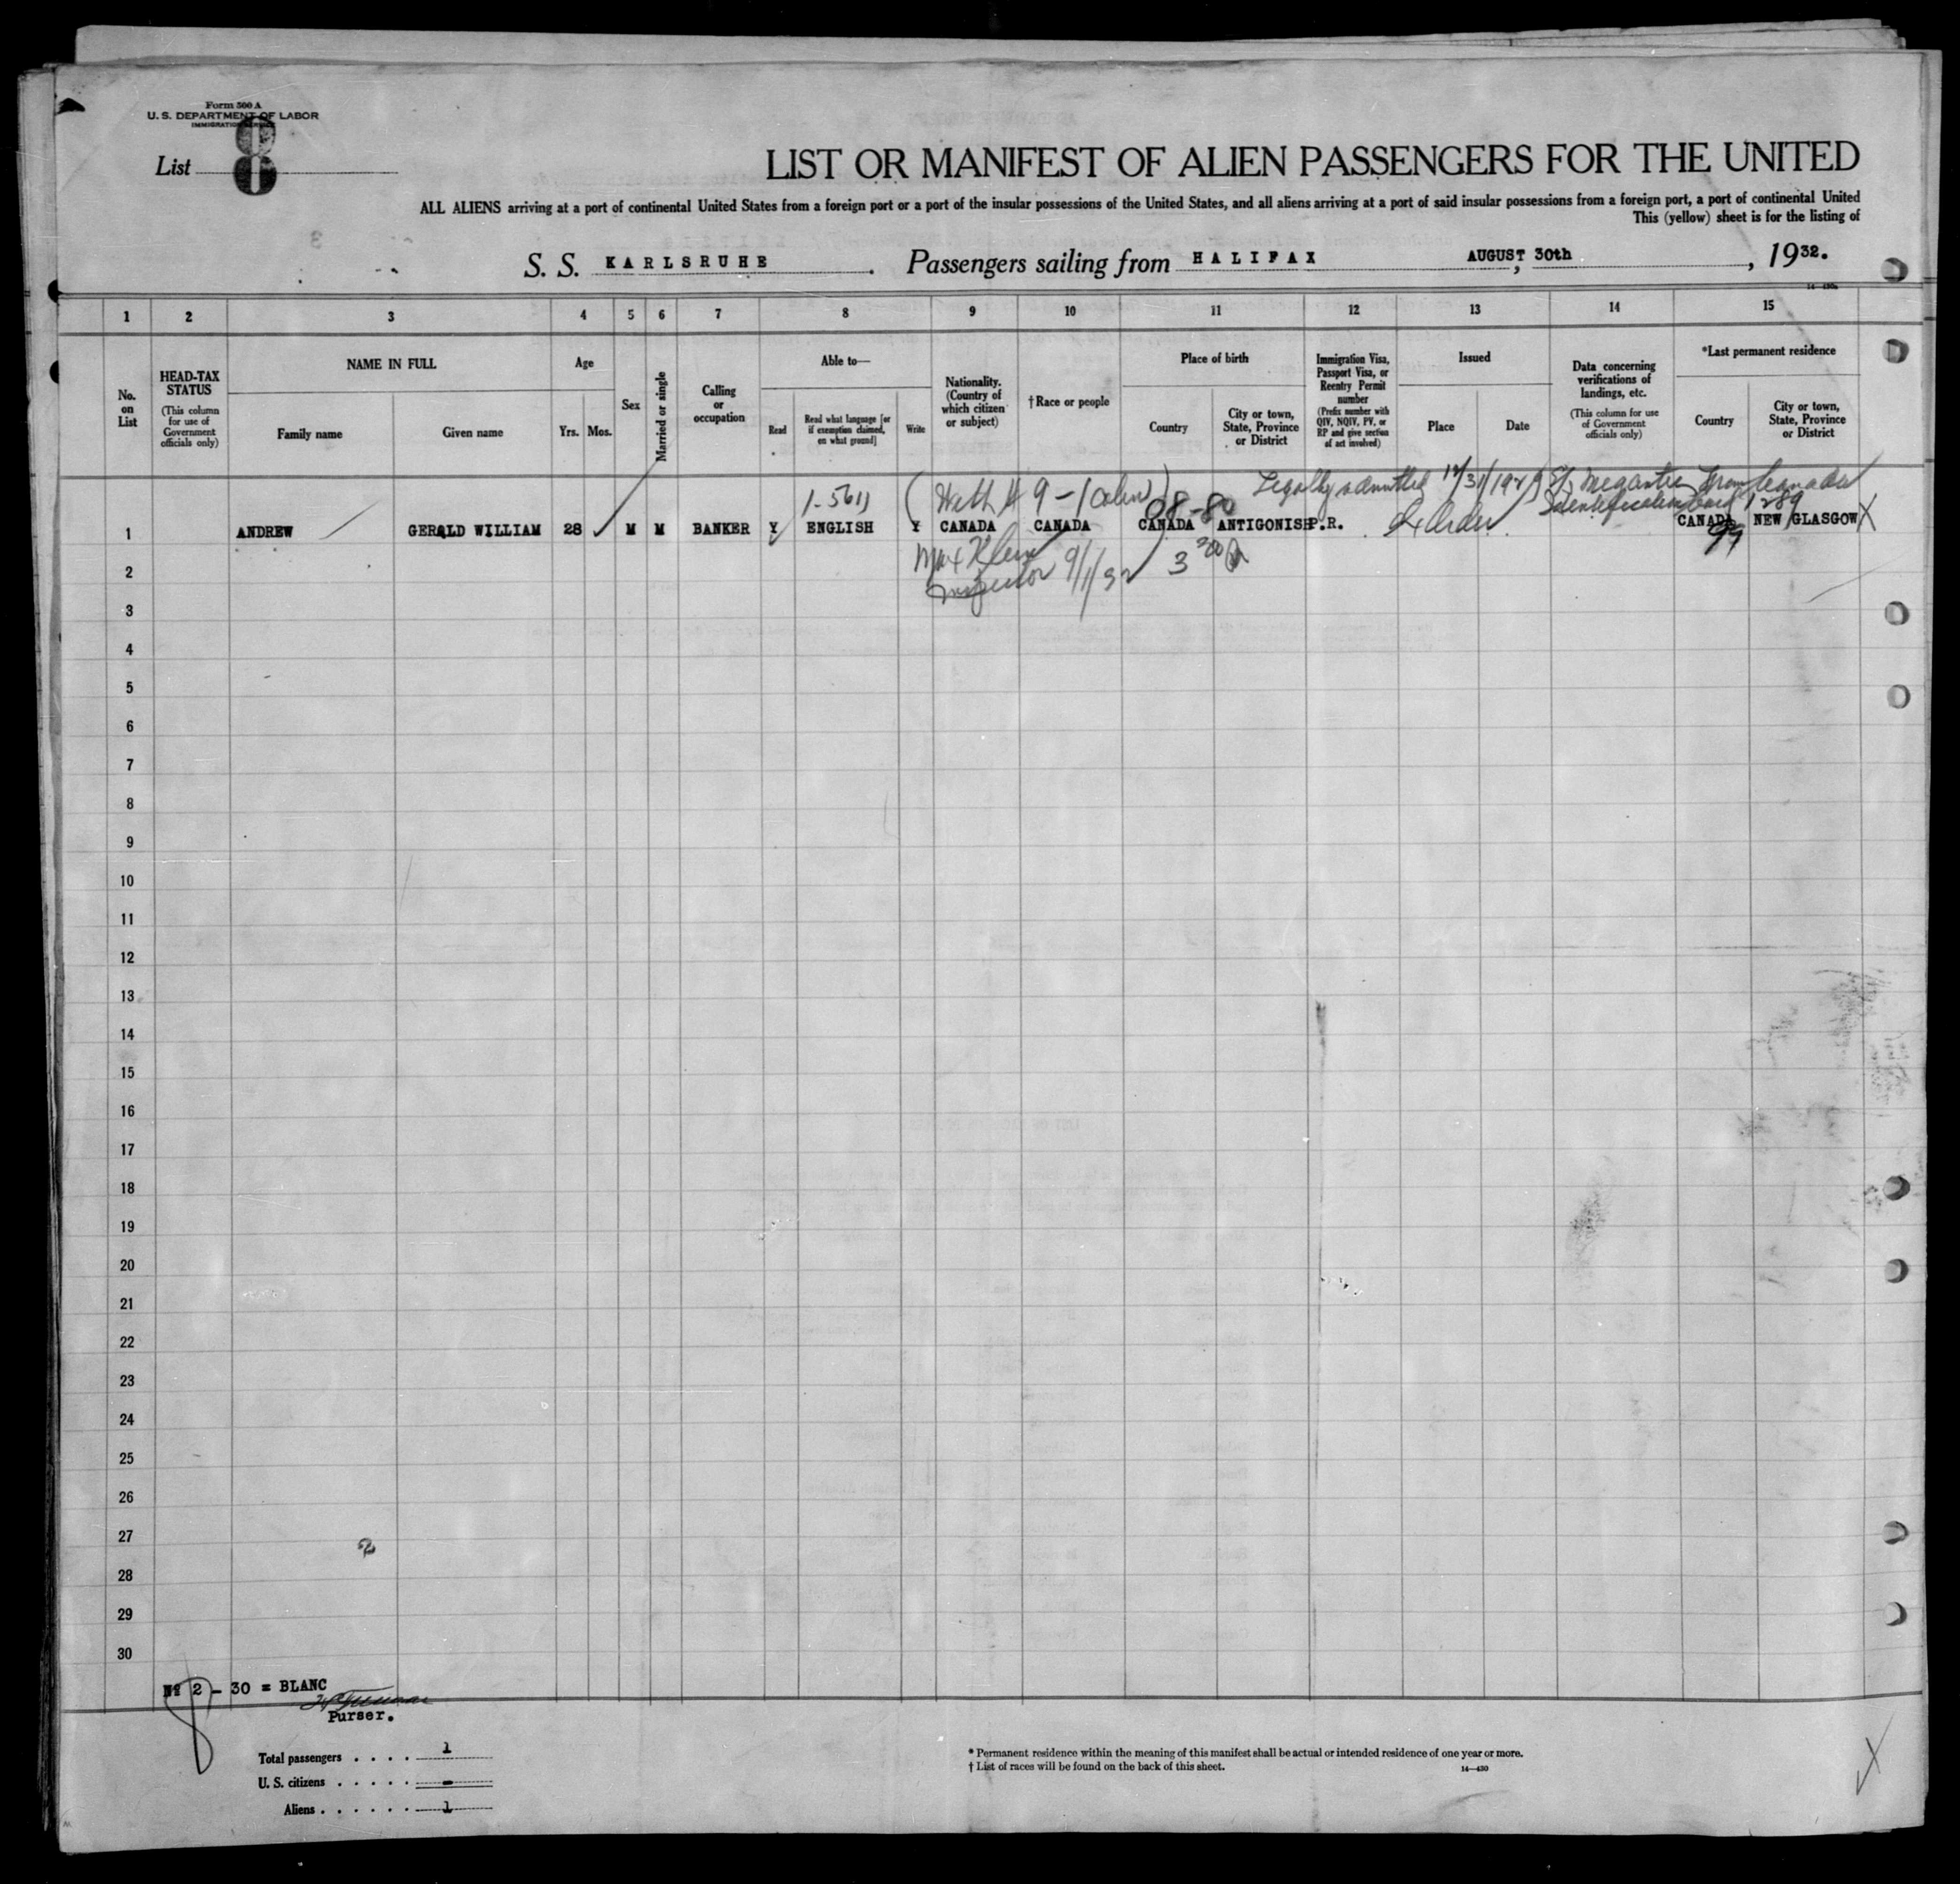 Form 500 A
U. S. DEPARTMENT OF LABOR
IMMIGRATION SERVICE
List 8
LIST OR MANIFEST OF ALIEN PASSENGERS FOR THE UNITED
ALL ALIENS arriving at a port of continental United States from a foreign port or a port of the insular possessions of the United States, and all aliens arriving at a port of said insular possessions from a foreign port, a port of continental United
This (yellow) sheet is for the listing of
S. S. KARLSRUHE . Passengers sailing from HALIFAX , AUGUST 30th , 1932.
1 2 3 4 5 6 7 8 9 10 11 12 13 14 15
No. on List
HEAD-TAX STATUS
(This column for use of Government officials only)
NAME IN FULL
Family name
Given name
Age
Yrs.
Mos.
Sex
Married or single
Calling or occupation
Able to—
Read
Read what language [or if exemption claimed, on what ground]
Write
Nationality. (Country of which citizen or subject)
†Race or people
Place of birth
Country
City or town, State, Province or District
Immigration Visa, Passport Visa, or Reentry Permit number
(Prefix number with QIV, NQIV, PV, or RP and give section of act involved)
Issued
Place
Date
Data concerning verifications of landings, etc.
(This column for use of Government officials only)
*Last permanent residence
Country
City or town, State, Province or District
9 - 1 alien)
08-80
Legally admitted 12/31/192
Megantic from Canada
Identification Card 1289
1 ANDREW GERALD WILLIAM 28 M M BANKER Y ENGLISH Y CANADA CANADA CANADA ANTIGONISH P.R. CANADA NEW GLASGOW X
99
Max Klein
Inspector 9/1/32 3
2
3
4
5
6
7
8
9
10
11
12
13
14
15
16
17
18
19
20
21
22
23
24
25
26
27
28
29
30
2
Nº 2 - 30 = BLANC
8
Purser.
Total passengers . . . . 1
U. S. citizens . . . . . -
Aliens . . . . . . 1
* Permanent residence within the meaning of this manifest shall be actual or intended residence of one year or more.
† List of races will be found on the back of this sheet.
14—430
X